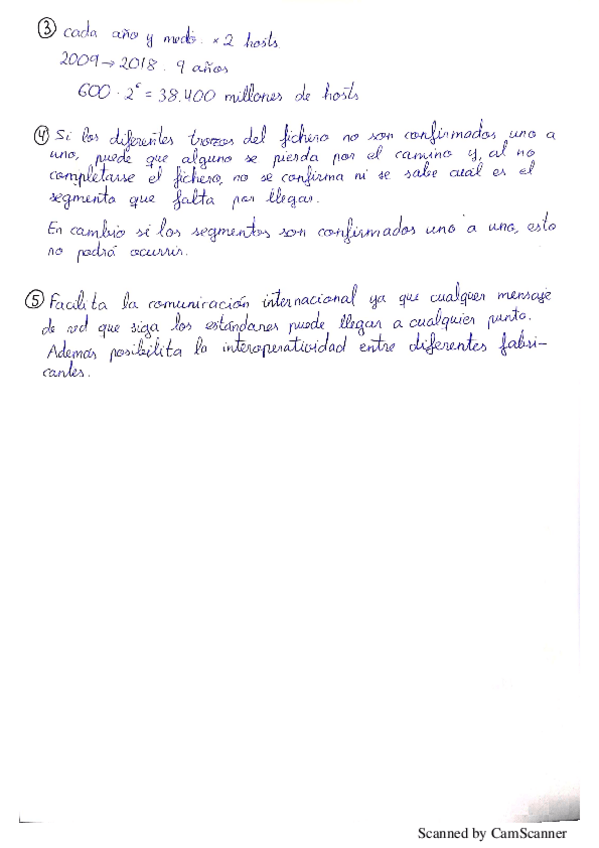 ③ cada año y medio. × 2 hosts.
2009 → 2018. 9 años
600 · 2⁶ = 38.400 millones de hosts
④ Si los diferentes trozos del fichero no son confirmados uno a
uno, puede que alguno se pierda por el camino y, al no
completarse el fichero, no se confirma ni se sabe cuál es el
segmento que falta por llegar.
En cambio si los segmentos son confirmados uno a uno, esto
no podrá ocurrir.
⑤ Facilita la comunicación internacional ya que cualquer mensaje
de red que siga los estándares puede llegar a cualquier punto.
Además posibilita la interoperatividad entre diferentes fabri-
cantes.
Scanned by CamScanner